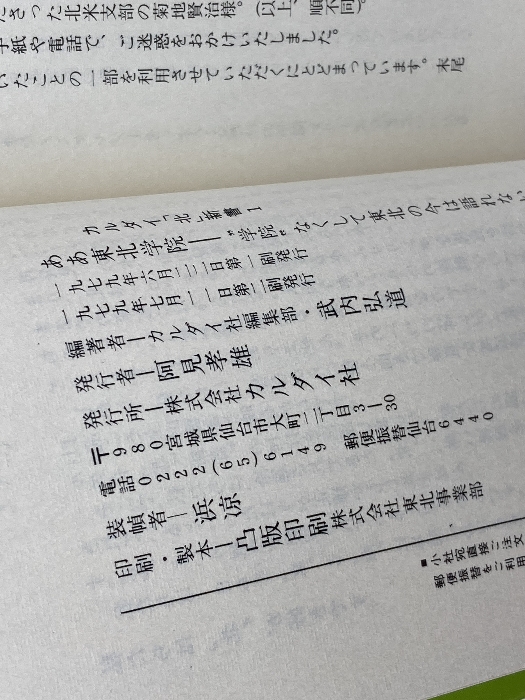 ださった北米支部の菊地賢治様。(以上、順不同)。
手紙や電話で、ご迷惑をおかけいたしました。
いたことの一部を利用させていただくにとどまっています。末尾
カルダイ「北」新書 1
ああ東北学院——"学院"なくして東北の今は語れない
一九七九年六月二二日第一刷発行
一九七九年七月一一日第二刷発行
編著者—カルダイ社編集部・武内弘道
発行者—阿見孝雄
発行所—株式会社カルダイ社
〒980宮城県仙台市大町二丁目3—30
電話0222(65)6149 郵便振替仙台6440
装幀者—浜凉
印刷・製本—凸版印刷株式会社東北事業部
■小社宛直接ご注文
郵便振替をご利用